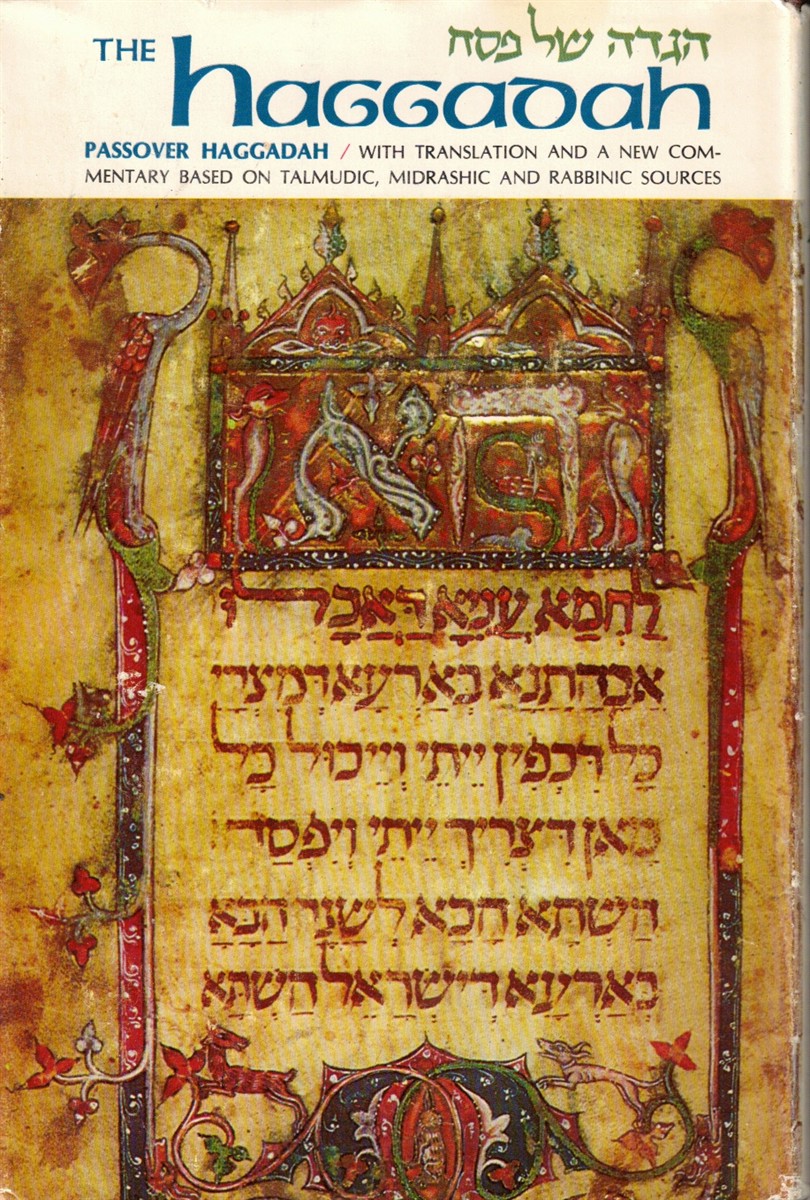 הגדה של פסח
THE haggadah
PASSOVER HAGGADAH / WITH TRANSLATION AND A NEW COM-
MENTARY BASED ON TALMUDIC, MIDRASHIC AND RABBINIC SOURCES
הא
לַחְמַא עַנְיָא דַּאֲכָלוּ
אַבְהָתַנָא בְּאַרְעָא דְמִצְרַי
כָּל דִּכְפִין יֵיתֵי וְיֵיכוּל כָּל
מַאן דִצְרִיךְ יֵיתֵי וְיִפְסַח
הַשְׁתָּא הָכָא לְשָׁנָה הַבָּא
בְּאַרְעָא דְיִשְׂרָאֵל הַשְׁתָּא